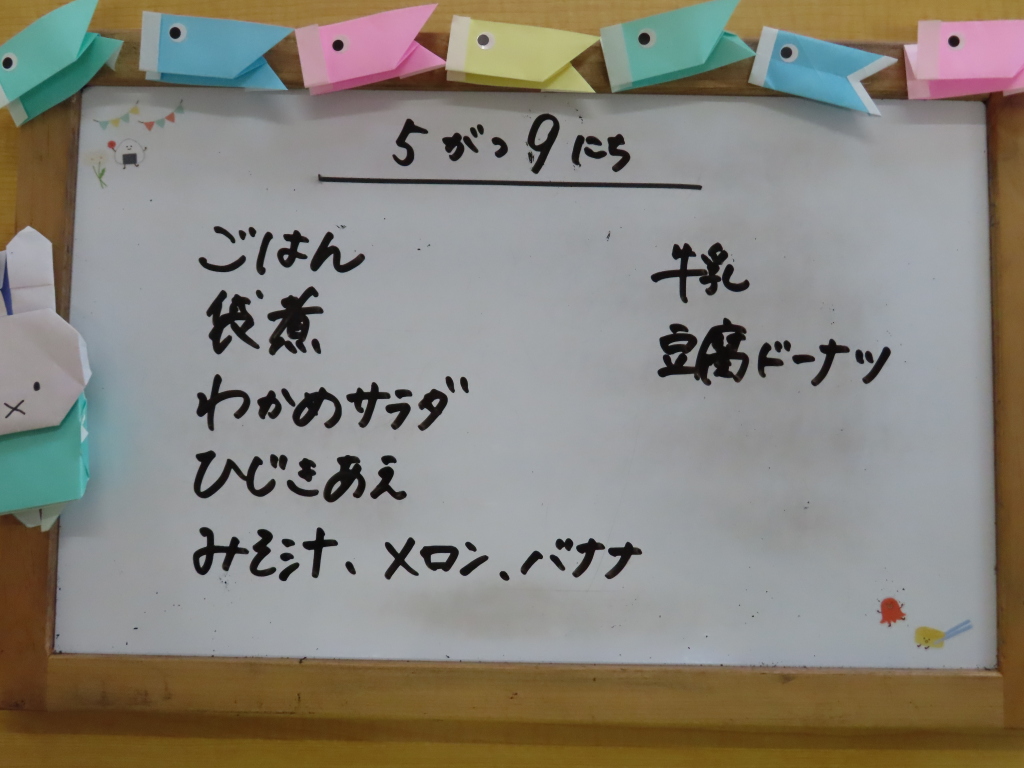 5がつ9にち
ごはん
袋煮
わかめサラダ
ひじきあえ
みそ汁、メロン、バナナ
牛乳
豆腐ドーナツ